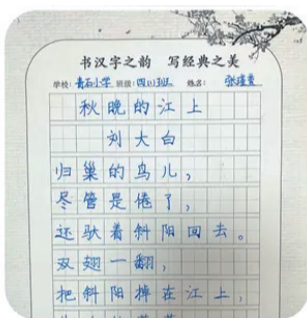 书汉字之韵 写经典之美
学校：青石小学 班级：四(1)班 姓名：张瑾萱
秋晚的江上
刘大白
归巢的鸟儿，
尽管是倦了，
还驮着斜阳回去。
双翅一翻，
把斜阳掉在江上，